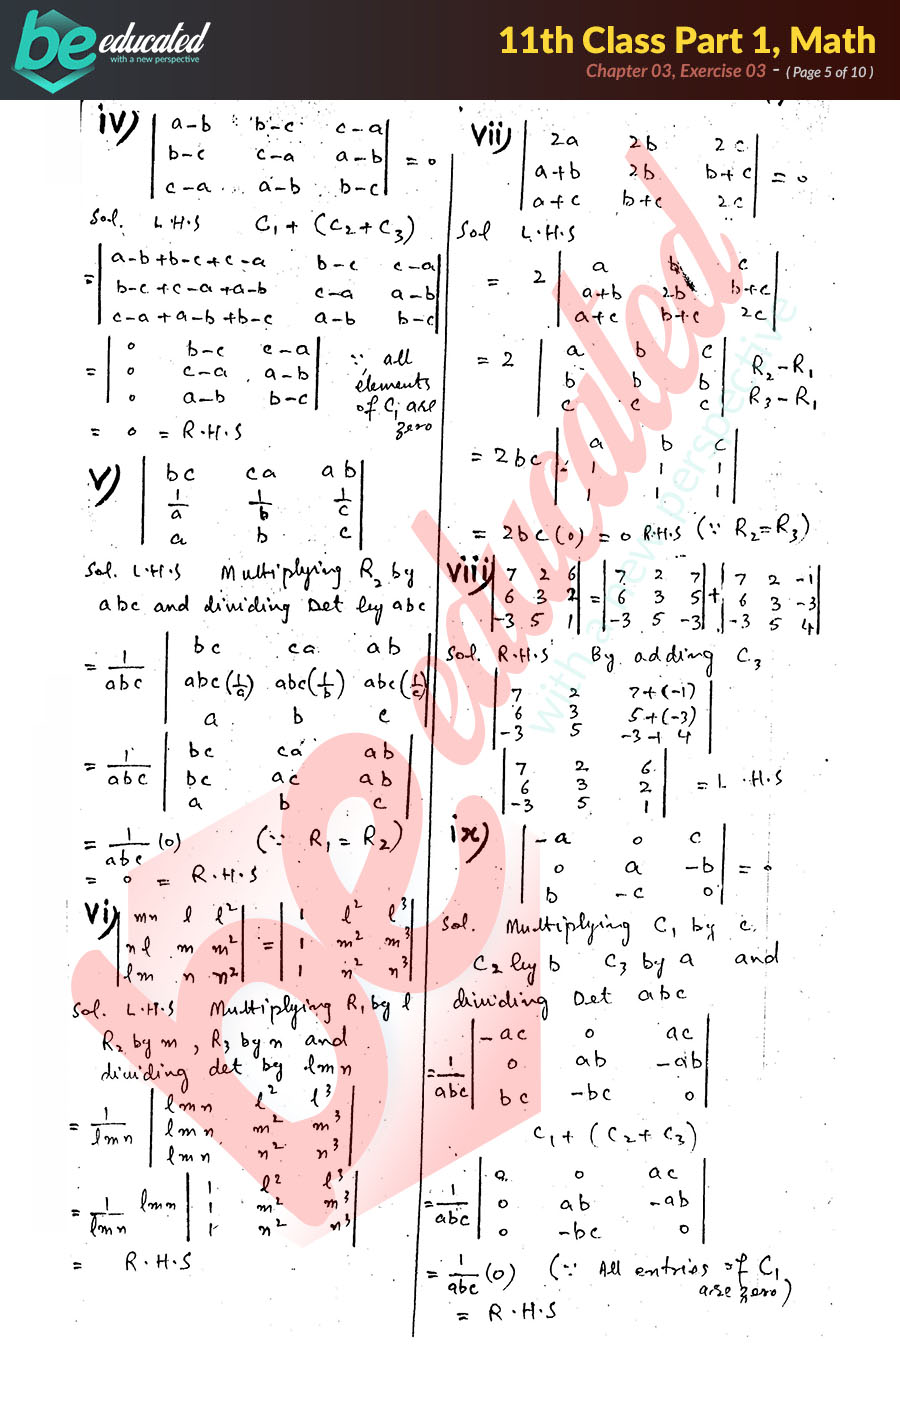 be educated
with a new perspective
11th Class Part 1, Math
Chapter 03, Exercise 03 - ( Page 5 of 10 )
iv) | a-b b-c c-a |
| b-c c-a a-b | = 0
| c-a a-b b-c |
Sol. L.H.S C₁ + (C₂+C₃)
= | a-b+b-c+c-a b-c c-a |
| b-c+c-a+a-b c-a a-b |
| c-a+a-b+b-c a-b b-c |
= | 0 b-c c-a | ∵ all
| 0 c-a a-b | elements
| 0 a-b b-c | of C₁ are
zero
= 0 = R.H.S
v) | bc ca ab |
| 1/a 1/b 1/c |
| a b c |
Sol. L.H.S Multiplying R₂ by
abc and dividing Det by abc
= 1/abc | bc ca ab |
| abc(1/a) abc(1/b) abc(1/c) |
| a b c |
= 1/abc | bc ca ab |
| bc ac ab |
| a b c |
= 1/abc (0) (∵ R₁ = R₂)
= 0 = R.H.S
vi) | mn l l² | = | 1 l² l³ |
| nl m m² | | 1 m² m³ |
| lm n n² | | 1 n² n³ |
Sol. L.H.S Multiplying R₁ by l
R₂ by m, R₃ by n and
dividing det by lmn
= 1/lmn | lmn l² l³ |
| lmn m² m³ |
| lmn n² n³ |
= 1/lmn lmn | 1 l² l³ |
| 1 m² m³ |
| 1 n² n³ |
= R.H.S
vii) | 2a 2b 2c |
| a+b 2b b+c | = 0
| a+c b+c 2c |
Sol L.H.S
= 2 | a b c |
| a+b 2b b+c |
| a+c b+c 2c |
= 2 | a b c |
| b b b | R₂-R₁
| c c c | R₃-R₁
= 2bc | a b c |
| 1 1 1 |
| 1 1 1 |
= 2bc(0) = 0 R.H.S (∵ R₂=R₃)
viii) | 7 2 6 | = | 7 2 7 | + | 7 2 -1 |
| 6 3 2 | | 6 3 5 | | 6 3 -3 |
| -3 5 1 | | -3 5 -3 | | -3 5 4 |
Sol. R.H.S By adding C₃
| 7 2 7+(-1) |
| 6 3 5+(-3) |
| -3 5 -3+4 |
| 7 2 6 |
| 6 3 2 | = L.H.S
| -3 5 1 |
ix) | -a 0 c |
| 0 a -b | = 0
| b -c 0 |
Sol. Multiplying C₁ by c.
C₂ by b C₃ by a and
dividing Det abc
= 1/abc | -ac 0 ac |
| 0 ab -ab |
| bc -bc 0 |
C₁ + (C₂ + C₃)
= 1/abc | 0 0 ac |
| 0 ab -ab |
| 0 -bc 0 |
= 1/abc (0) (∵ All entries of C₁
are zero)
= R.H.S
be educated
with a new perspective